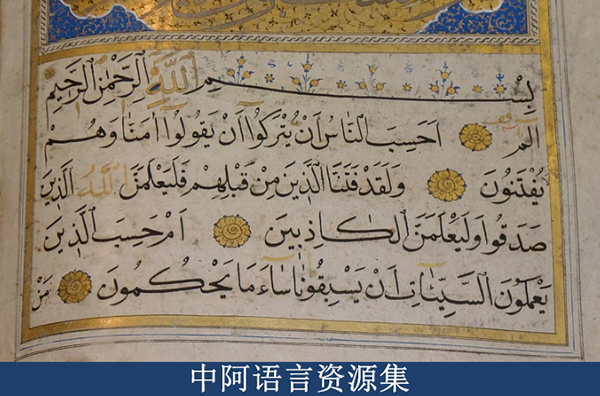 بِسْمِ اللّٰهِ الرَّحْمٰنِ الرَّحِيمِ
الم اَحَسِبَ النَّاسُ اَنْ يُتْرَكُوا اَنْ يَقُولُوا اٰمَنَّا وَهُمْ
يُفْتَنُونَ وَلَقَدْ فَتَنَّا الَّذِينَ مِنْ قَبْلِهِمْ فَلَيَعْلَمَنَّ اللّٰهُ الَّذِينَ
صَدَقُوا وَلَيَعْلَمَنَّ الْكَاذِبِينَ اَمْ حَسِبَ الَّذِينَ
يَعْمَلُونَ السَّيِّئَاتِ اَنْ يَسْبِقُونَا سَاءَ مَا يَحْكُمُونَ مَنْ
中阿语言资源集